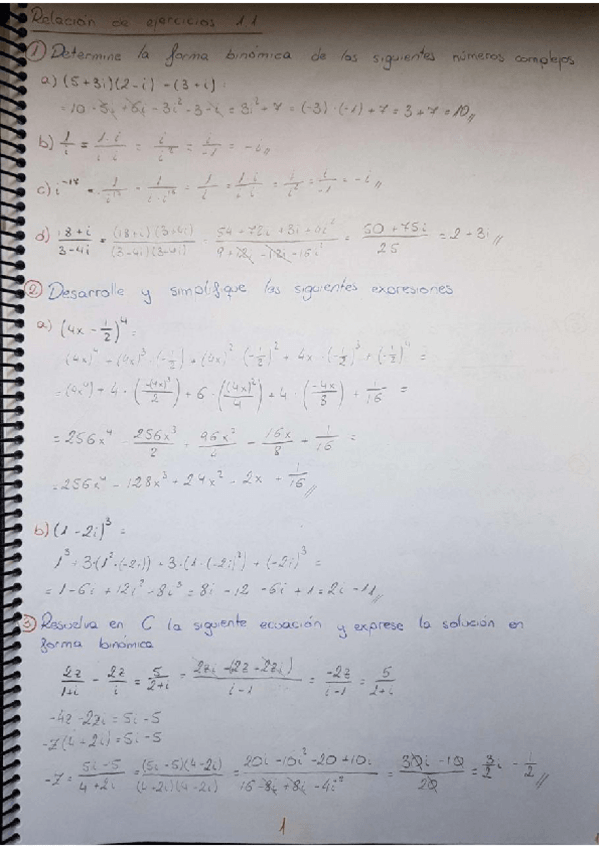 Relación de ejercicios 11
① Determine la forma binómica de los siguientes números complejos
a) (5+3i)(2-i) - (3+i) =
= 10 - 5i + 6i - 3i² - 3 - i = 3i² + 7 = (-3)·(-1) + 7 = 3 + 7 = 10
b) 1/i = 1·i/i·i = i/i² = i/-1 = -i
c) i⁻¹⁸ =
d) 18+i/3-4i = (18+i)(3+4i)/(3-4i)(3+4i) = = 50+75i/25 = 2+3i
② Desarrolle y simplifique las siguientes expresiones
a) (4x - 1/2)⁴ =
(4x)⁴ + (4x)³·(-1/2) + (4x)²·(-1/2)² + 4x·(-1/2)³ + (-1/2)⁴ =
= 256x⁴ - 256x³/2 + 96x²/4 - 16x/8 + 1/16 =
= 256x⁴ - 128x³ + 24x² - 2x + 1/16
b) (1-2i)³ =
1³ + 3·(1²·(-2i)) + 3·(1·(-2i)²) + (-2i)³ =
= 1 - 6i + 12i² - 8i³ = 8i - 12 - 6i + 1 = 2i - 11
③ Resuelva en C la siguiente ecuación y exprese la solución en
forma binómica
2z/1+i - 2z/i = 5/2+i = = -2z/i-1 = 5/2+i
-4z - 2zi = 5i - 5
-z(4+2i) = 5i - 5
-z = 5i-5/4+2i = (5i-5)(4-2i)/(4+2i)(4-2i) = 20i-10i²-20+10i/16-8i+8i-4i² = 30i-10/20 = 3/2i - 1/2
1